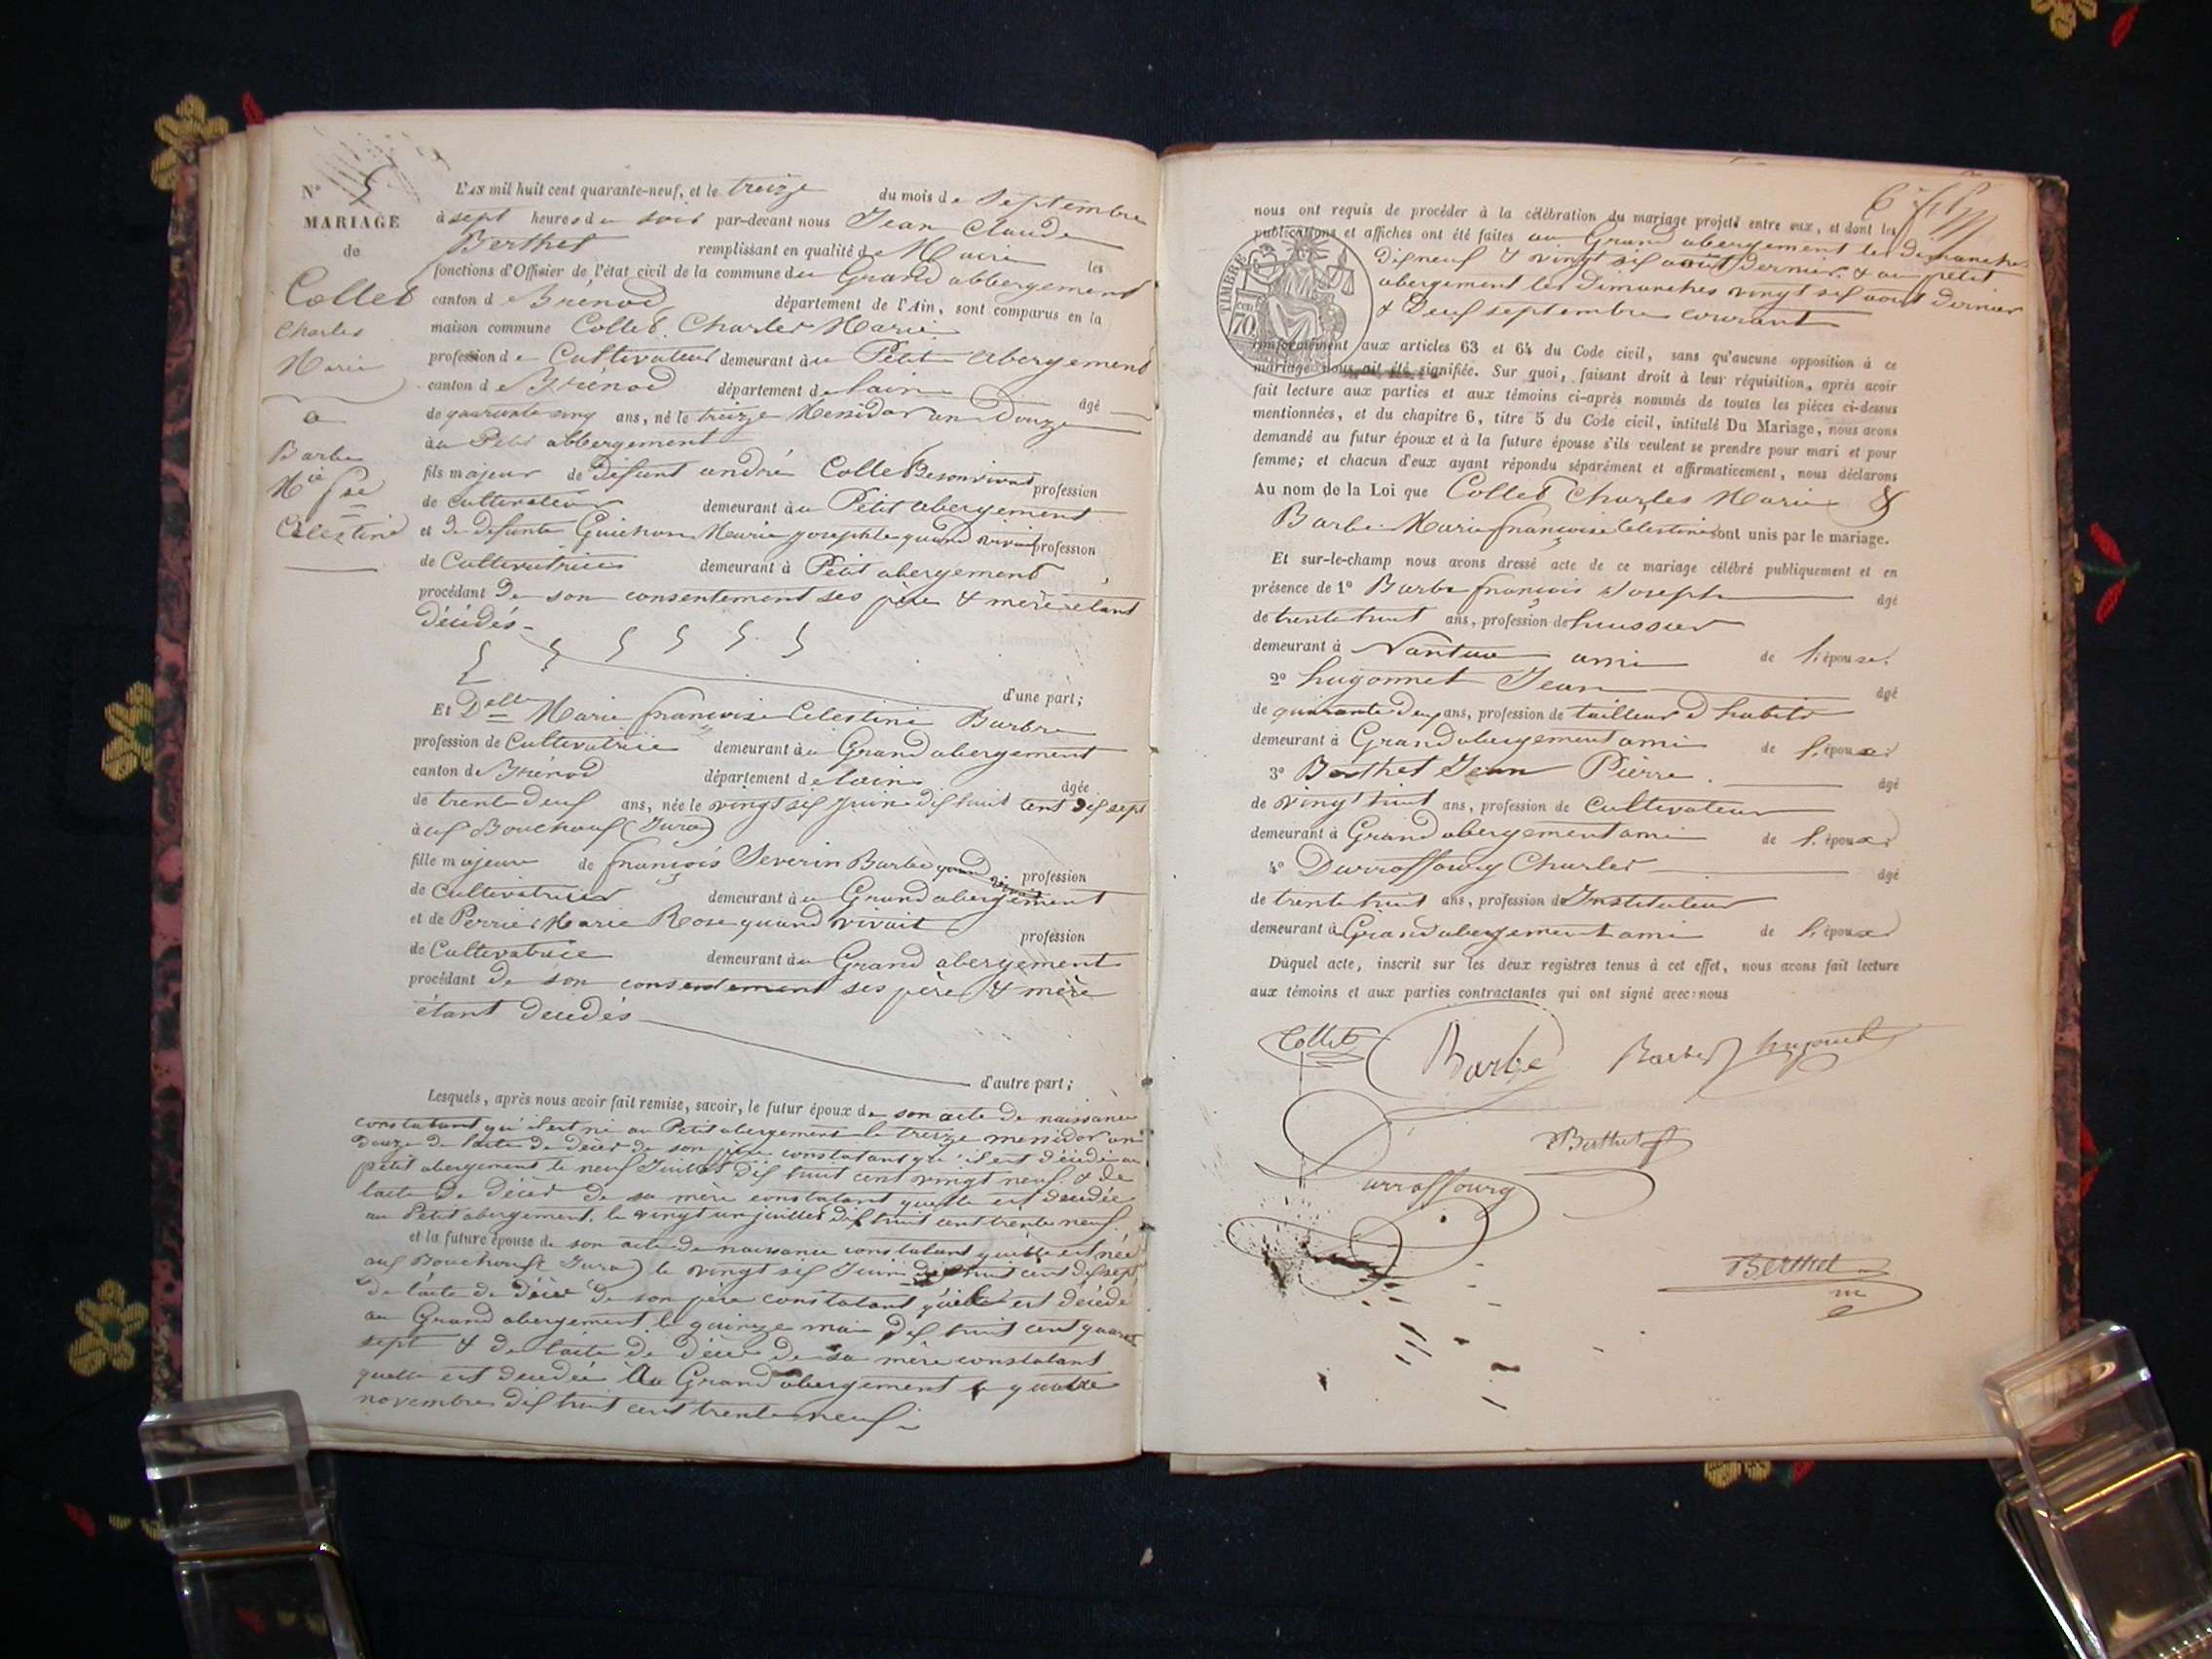 N° 5
MARIAGE
de
Collet
Charles
Marie
a
Barbe
Mie fse
Célestine
L'AN mil huit cent quarante-neuf, et le treize du mois de Septembre
à sept heures du soir par-devant nous Jean Claude
Berthet remplissant en qualité de Maire les
fonctions d'Officier de l'état civil de la commune du Grand abbergement
canton de Brénod département de l'Ain, sont comparus en la
maison commune Collet Charles Marie
profession de Cultivateur demeurant au Petit abergement
canton de Brénod département de lain âgé
de quarante cinq ans, né le treize Messidor an Douze
au Petit abbergement
fils majeur de defunt andré Collet De son vivant profession
de cultivateur demeurant au Petit abergement
et de defunte Guichon Marie josephte quand vivait profession
de Cultivatrice demeurant à Petit abergement
procédant De son consentement ses père & mère étant
décédés
d'une part;
Et Delle Marie françoise Célestine Barbe
profession de Cultivatrice demeurant au Grand abergement
canton de Brénod département de lain âgée
de trente deux ans, née le vingt six juin dix huit cent dix sept
à ux Bouchoux (Jura)
fille majeure de françois Severin Barbe quand vivait profession
de Cultivateur demeurant au Grand abergement
et de Perrier Marie Rose quand vivait profession
de Cultivatrice demeurant au Grand abergement
procédant de son consentement ses père & mère
étant décédés
d'autre part;
Lesquels, après nous avoir fait remise, savoir, le futur époux de son acte de naissance
constatant qu'il est né au Petit abergement le treize messidor an
Douze de l'acte de décès de son père constatant qu'il est décédé au
petit abergement le neuf Juillet dix huit cent vingt neuf & de
l'acte de décès de sa mère constatant quelle est décédée
au Petit abergement le vingt un juillet dix huit cent trente neuf.
et la future épouse de son acte de naissance constatant quelle est née
aux Bouchoux (Jura) le vingt six Juin dix huit cent dix sept
De l'acte de décès de son père constatant qu'il est décédé
au Grand abergement le quinze mai dix huit cent quarante
sept & de l'acte de décès de sa mère constatant
quelle est décédée Au Grand abergement le quatre
novembre dix huit cent trente neuf
nous ont requis de procéder à la célébration du mariage projeté entre eux, et dont les
publications et affiches ont été faites au Grand abergement les dimanches
dix neuf & vingt six août dernier & au petit
abergement les Dimanches vingt six août dernier
& Deux septembre courant
TIMBRE
70
conformément aux articles 63 et 64 du Code civil, sans qu'aucune opposition à ce
mariage nous ait été signifiée. Sur quoi, faisant droit à leur réquisition, après avoir
fait lecture aux parties et aux témoins ci-après nommés de toutes les pièces ci-dessus
mentionnées, et du chapitre 6, titre 5 du Code civil, intitulé Du Mariage, nous avons
demandé au futur époux et à la future épouse s'ils veulent se prendre pour mari et pour
femme; et chacun d'eux ayant répondu séparément et affirmativement, nous déclarons
Au nom de la Loi que Collet Charles Marie &
Barbe Marie françoise Celestine sont unis par le mariage.
Et sur-le-champ nous avons dressé acte de ce mariage célébré publiquement et en
présence de 1° Barbe françois Joseph âgé
de trente huit ans, profession de huissier
demeurant à Nantua ami de l'épouse.
2° hugonnet Jean âgé
de quarante deux ans, profession de tailleur d'habits
demeurant à Grand abergement ami de l'époux
3° Berthet Jean Pierre âgé
de vingt huit ans, profession de Cultivateur
demeurant à Grand abergement ami de l'époux
4° Durraffourg Charles âgé
de trente huit ans, profession de Instituteur
demeurant à Grand abergement ami de l'époux
Duquel acte, inscrit sur les deux registres tenus à cet effet, nous avons fait lecture
aux témoins et aux parties contractantes qui ont signé avec nous
Collet Barbe Barbe hugonnet
Berthet
Durraffourg
Berthet
m